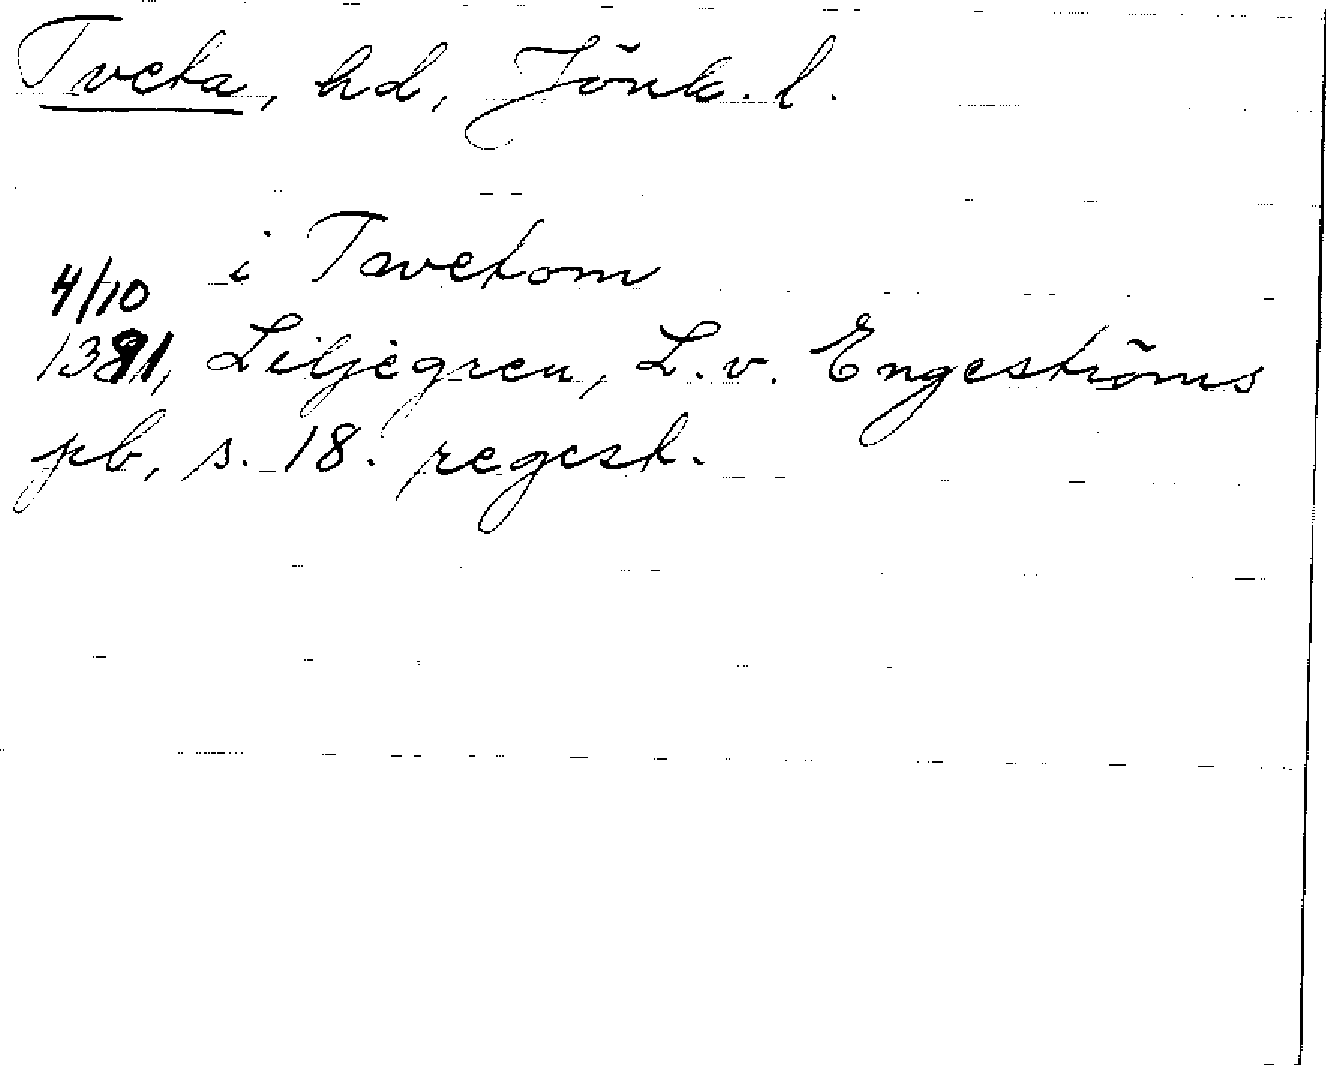 Tveta, hd, Jönk. l.
i Tavetom
4/10
1381, Liljegren, L. v. Engeströms
pb, s. 18. regest.